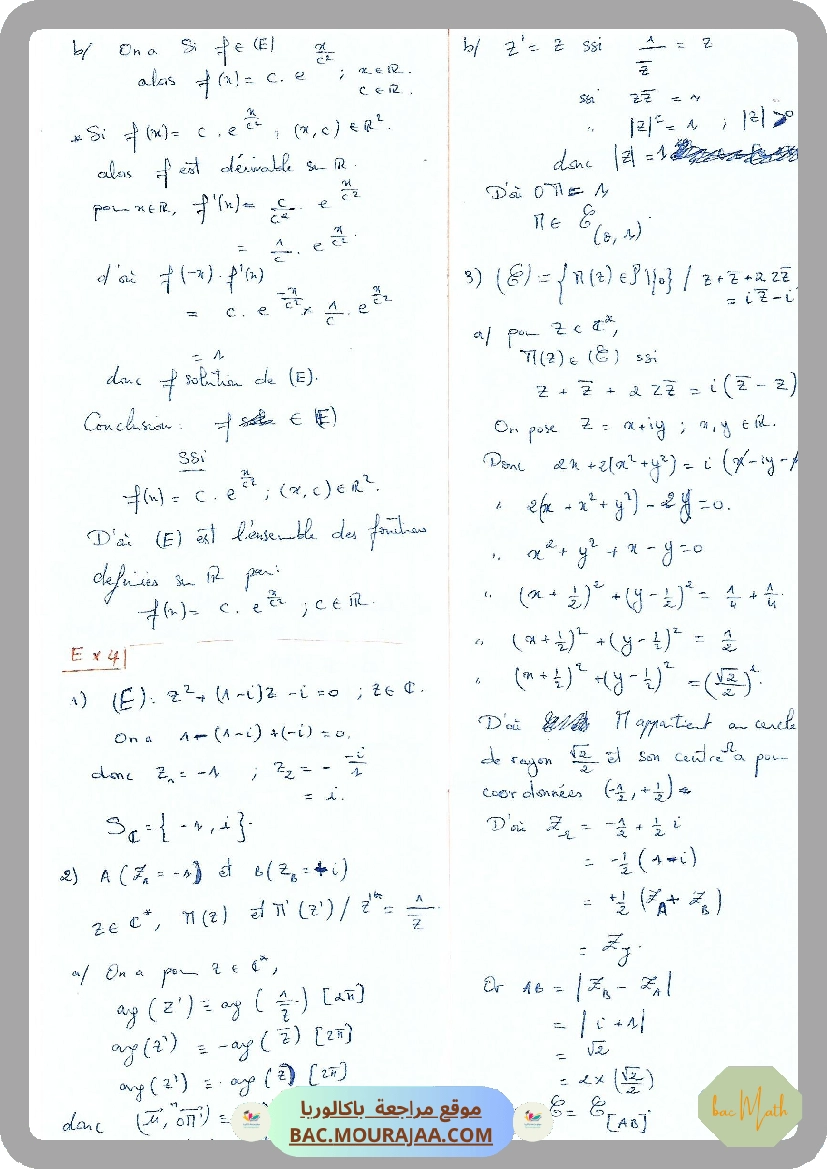 b/ On a Si f ∈ (E)
alors f(x) = c . e^{x/c²} ; x ∈ ℝ. c ∈ ℝ.
* Si f(x) = c . e^{x/c²} , (x, c) ∈ ℝ².
alors f est dérivable sur ℝ.
pour x ∈ ℝ, f'(x) = c/c² . e^{x/c²}
= 1/c . e^{x/c²}
d'où f(-x) . f'(x)
= c . e^{-x/c²} × 1/c . e^{x/c²}
= 1
donc f solution de (E).
Conclusion : f ∈ (E)
ssi
f(x) = c . e^{x/c²} ; (x, c) ∈ ℝ².
D'où (E) est l'ensemble des fonctions
définies sur ℝ par :
f(x) = c . e^{x/c²} ; c ∈ ℝ.
Ex 4
1) (E) : z² + (1-i)z - i = 0 ; z ∈ ℂ.
On a 1 - (1-i) + (-i) = 0.
donc z₁ = -1 ; z₂ = - -i/1
= i.
S_ℂ = { -1, i }.
2) A(z_A = -1) et B(z_B = i)
z ∈ ℂ*, M(z) et M'(z') / z' = 1/z̄
a/ On a pour z ∈ ℂ*,
arg(z') ≡ arg(1/z̄) [2π]
arg(z') ≡ -arg(z̄) [2π]
arg(z') ≡ arg(z) [2π]
donc (u⃗, OM'⃗) ≡
b/ z' = z ssi 1/z̄ = z
ssi z z̄ = 1
" |z|² = 1 ; |z| > 0
donc |z| = 1
D'où OM = 1
M ∈ 𝒞(o, 1)
3) (𝒞) = { M(z) ∈ P\{0} / z + z̄ + 2 z z̄
= i z̄ - i
a/ pour z ∈ ℂ*,
M(z) ∈ (𝒞) ssi
z + z̄ + 2 z z̄ = i(z̄ - z)
On pose z = x + iy ; x, y ∈ ℝ.
Donc 2x + 2(x² + y²) = i (x - iy -
" 2(x + x² + y²) - 2y = 0.
" x² + y² + x - y = 0
" (x + 1/2)² + (y - 1/2)² = 1/4 + 1/4.
" (x + 1/2)² + (y - 1/2)² = 1/2
" (x + 1/2)² + (y - 1/2)² = (√2/2)².
D'où M appartient au cercle
de rayon √2/2 et son centre Ω a pour
coordonnées (-1/2, +1/2)
D'où z_Ω = -1/2 + 1/2 i
= -1/2 (1 - i)
= +1/2 (z_A + z_B)
= z_J.
Or AB = |z_B - z_A|
= |i + 1|
= √2
= 2 × (√2/2)
𝒞 = 𝒞_[AB]
موقع مراجعة باكالوريا
BAC.MOURAJAA.COM
bac Math